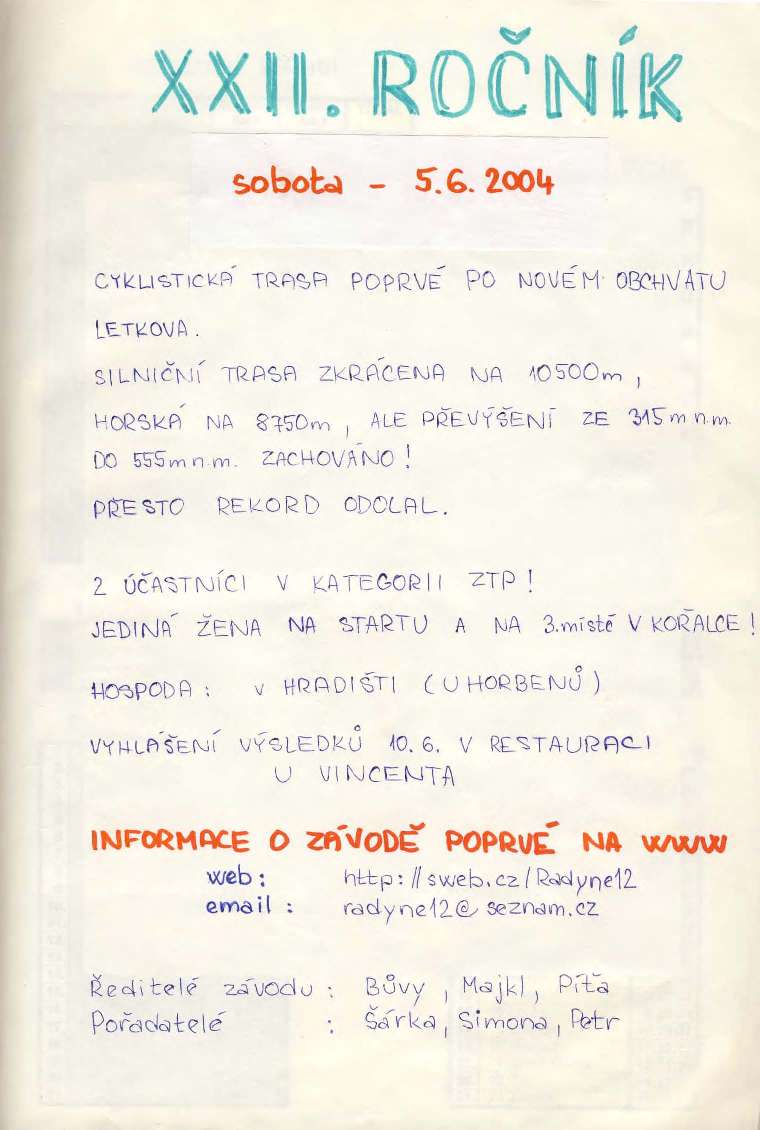 XXII. ROČNÍK
sobota - 5.6.2004
CYKLISTICKÁ TRASA POPRVÉ PO NOVÉM OBCHVATU
LETKOVA.
SILNIČNÍ TRASA ZKRÁCENA NA 10500m,
HORSKÁ NA 8750m, ALE PŘEVÝŠENÍ ZE 315m n.m.
DO 555m n.m. ZACHOVÁNO!
PŘESTO REKORD ODOLAL.
2 ÚČASTNÍCI V KATEGORII ZTP!
JEDINÁ ŽENA NA STARTU A NA 3.místě V KOŘALCE!
HOSPODA: V HRADIŠTI (U HORBENŮ)
VYHLÁŠENÍ VÝSLEDKŮ 10.6. V RESTAURACI
U VINCENTA
INFORMACE O ZÁVODĚ POPRVÉ NA WWW
web: http://sweb.cz/Radyne12
email: radyne12@seznam.cz
Ředitelé závodu: Bůvy, Majkl, Píťa
Pořadatelé : Šárka, Simona, Petr